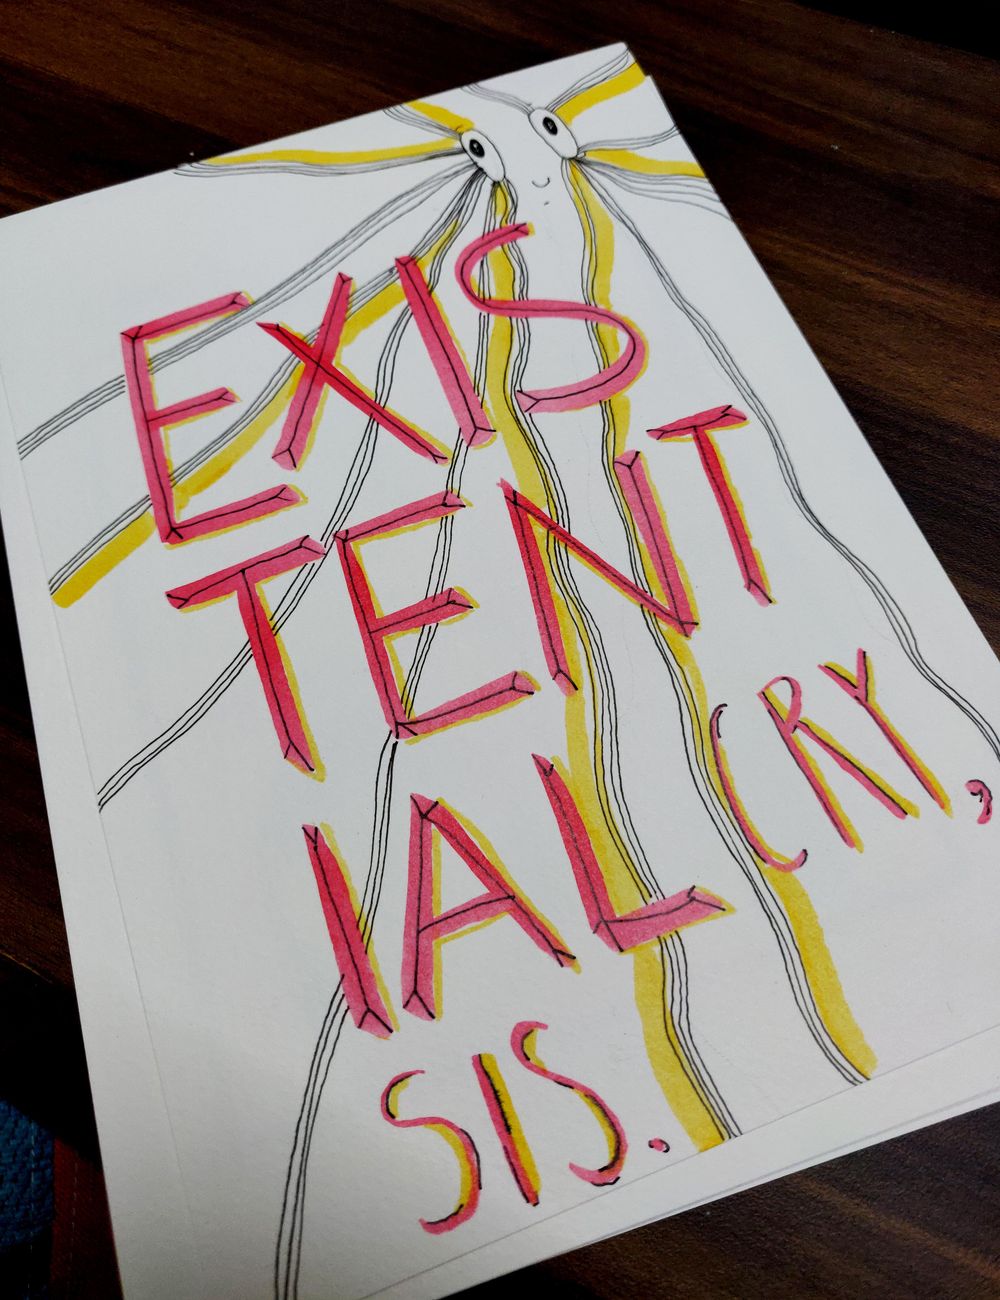 EXIS
TENT
IAL CRY,
SIS.